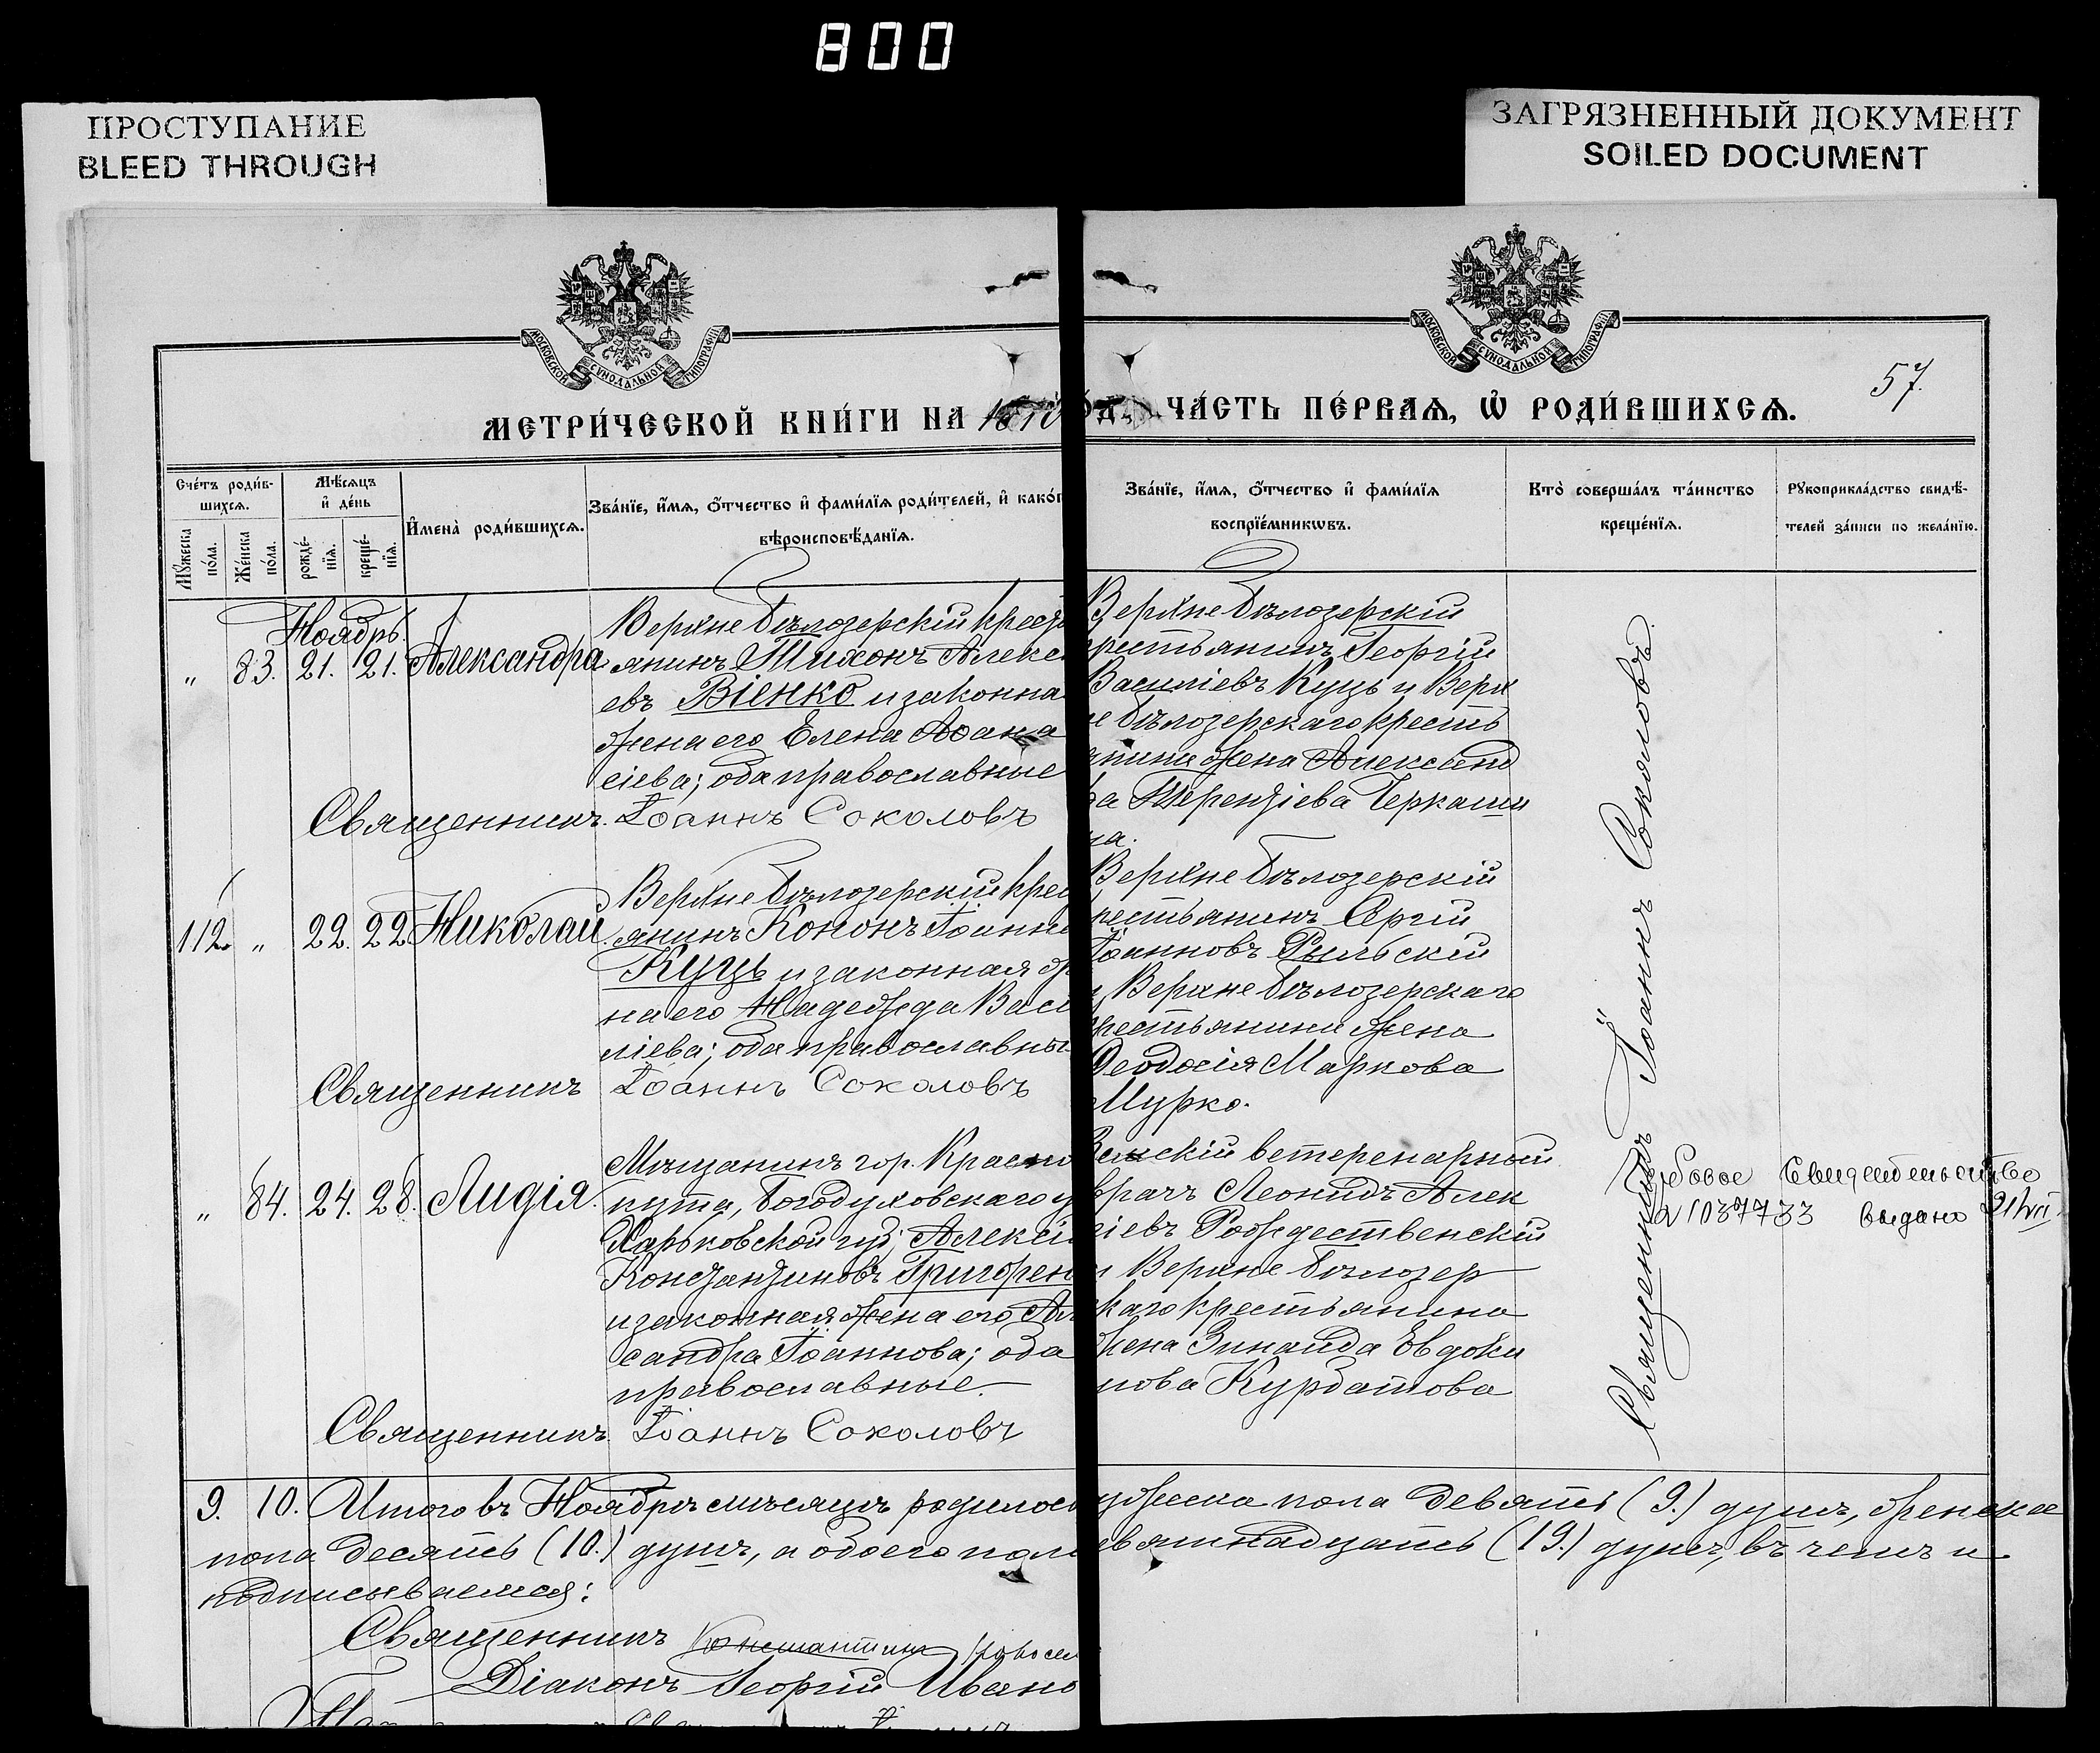 800
ПРОСТУПАНИЕ
BLEED THROUGH
ЗАГРЯЗНЕННЫЙ ДОКУМЕНТ
SOILED DOCUMENT
МОСКОВСКОЙ СѴНОДАЛЬНОЙ ТИПОГРАФІИ
МОСКОВСКОЙ СѴНОДАЛЬНОЙ ТИПОГРАФІИ
57.
МЕТРИ́ЧЕСКОЙ КНИ́ГИ НА
ЧА́СТЬ ПЕ́РВАѦ, Ѽ РОДИ́ВШИХСѦ.
Сче́тъ роди́в-
шихсѧ.
Мꙋ́жеска по́ла.
Же́нска по́ла.
Мѣ́сѧцъ
и҆ де́нь
рожде́-нїѧ.
креще́-нїѧ.
И҆мена̀ роди́вшихсѧ.
Зва́нїе, и҆́мѧ, ѻ҆́тчество и҆ фами́лїѧ роди́телей, и҆ како́г
вѣроисповѣ́данїѧ.
Зва́нїе, и҆́мѧ, ѻ҆́тчество и҆ фами́лїѧ
воспрїе́мникѡвъ.
Кто̀ соверша́лъ та́инство
креще́нїѧ.
Рꙋкоприкла́дство свидѣ́-
телей за́писи по жела́нїю.
Ноябрь.
„ 83. 21. 21. Александра
Верхне Бѣлозерскій крест
янинъ Тихонъ Алексѣ
евъ Віенко и законна
жена его Елена Аѳана
сіева; оба православные
Священникъ Іоаннъ Соколовъ
Верхне Бѣлозерскій
крестьянинъ Георгій
Василіевъ Куць и Верх
не Бѣлозерскаго кресть
янина жена Александ
ра Терентіева Черкаши
на.
112. „ 22. 22 Николай
Верхне Бѣлозерскій крес
янинъ Кононъ Іоанно
Куць и законная же
на его Надежда Васи
ліева; оба православны
Священникъ Іоаннъ Соколовъ
Верхне Бѣлозерскій
крестьянинъ Сергій
Іоанновъ Рыльскій
и Верхне Бѣлозерскаго
крестьянина жена
Ѳеодосія Маркова
Мурко.
„ 84. 24. 28. Лидія.
Мѣщанинъ гор. Красно
кута, Богодуховскаго у
Харьковской губ; Алексій
Константиновъ Григорен
и законная жена его Ал
сандра Іоаннова; оба
православные.
Священникъ Іоаннъ Соколовъ
Земскій ветеренарный
врачъ Леонидъ Алек
сіевъ Рождественскій
и Верхне Бѣлозер
скаго крестьянина
жена Зинаида Евдоки
мова Курбатова
Священникъ Іоаннъ Соколовъ.
Свидетельство
1037733 выдано
9. 10. Итого въ Ноябрѣ мѣсяцѣ родилось
ужеска пола девять (9.) душъ, женска
пола десять (10.) душъ, а обоего пола
евятнадцать (19.) душъ, въ чемъ и
подписываемся:
Священникъ Константинъ
Діаконъ Георгій Ивано